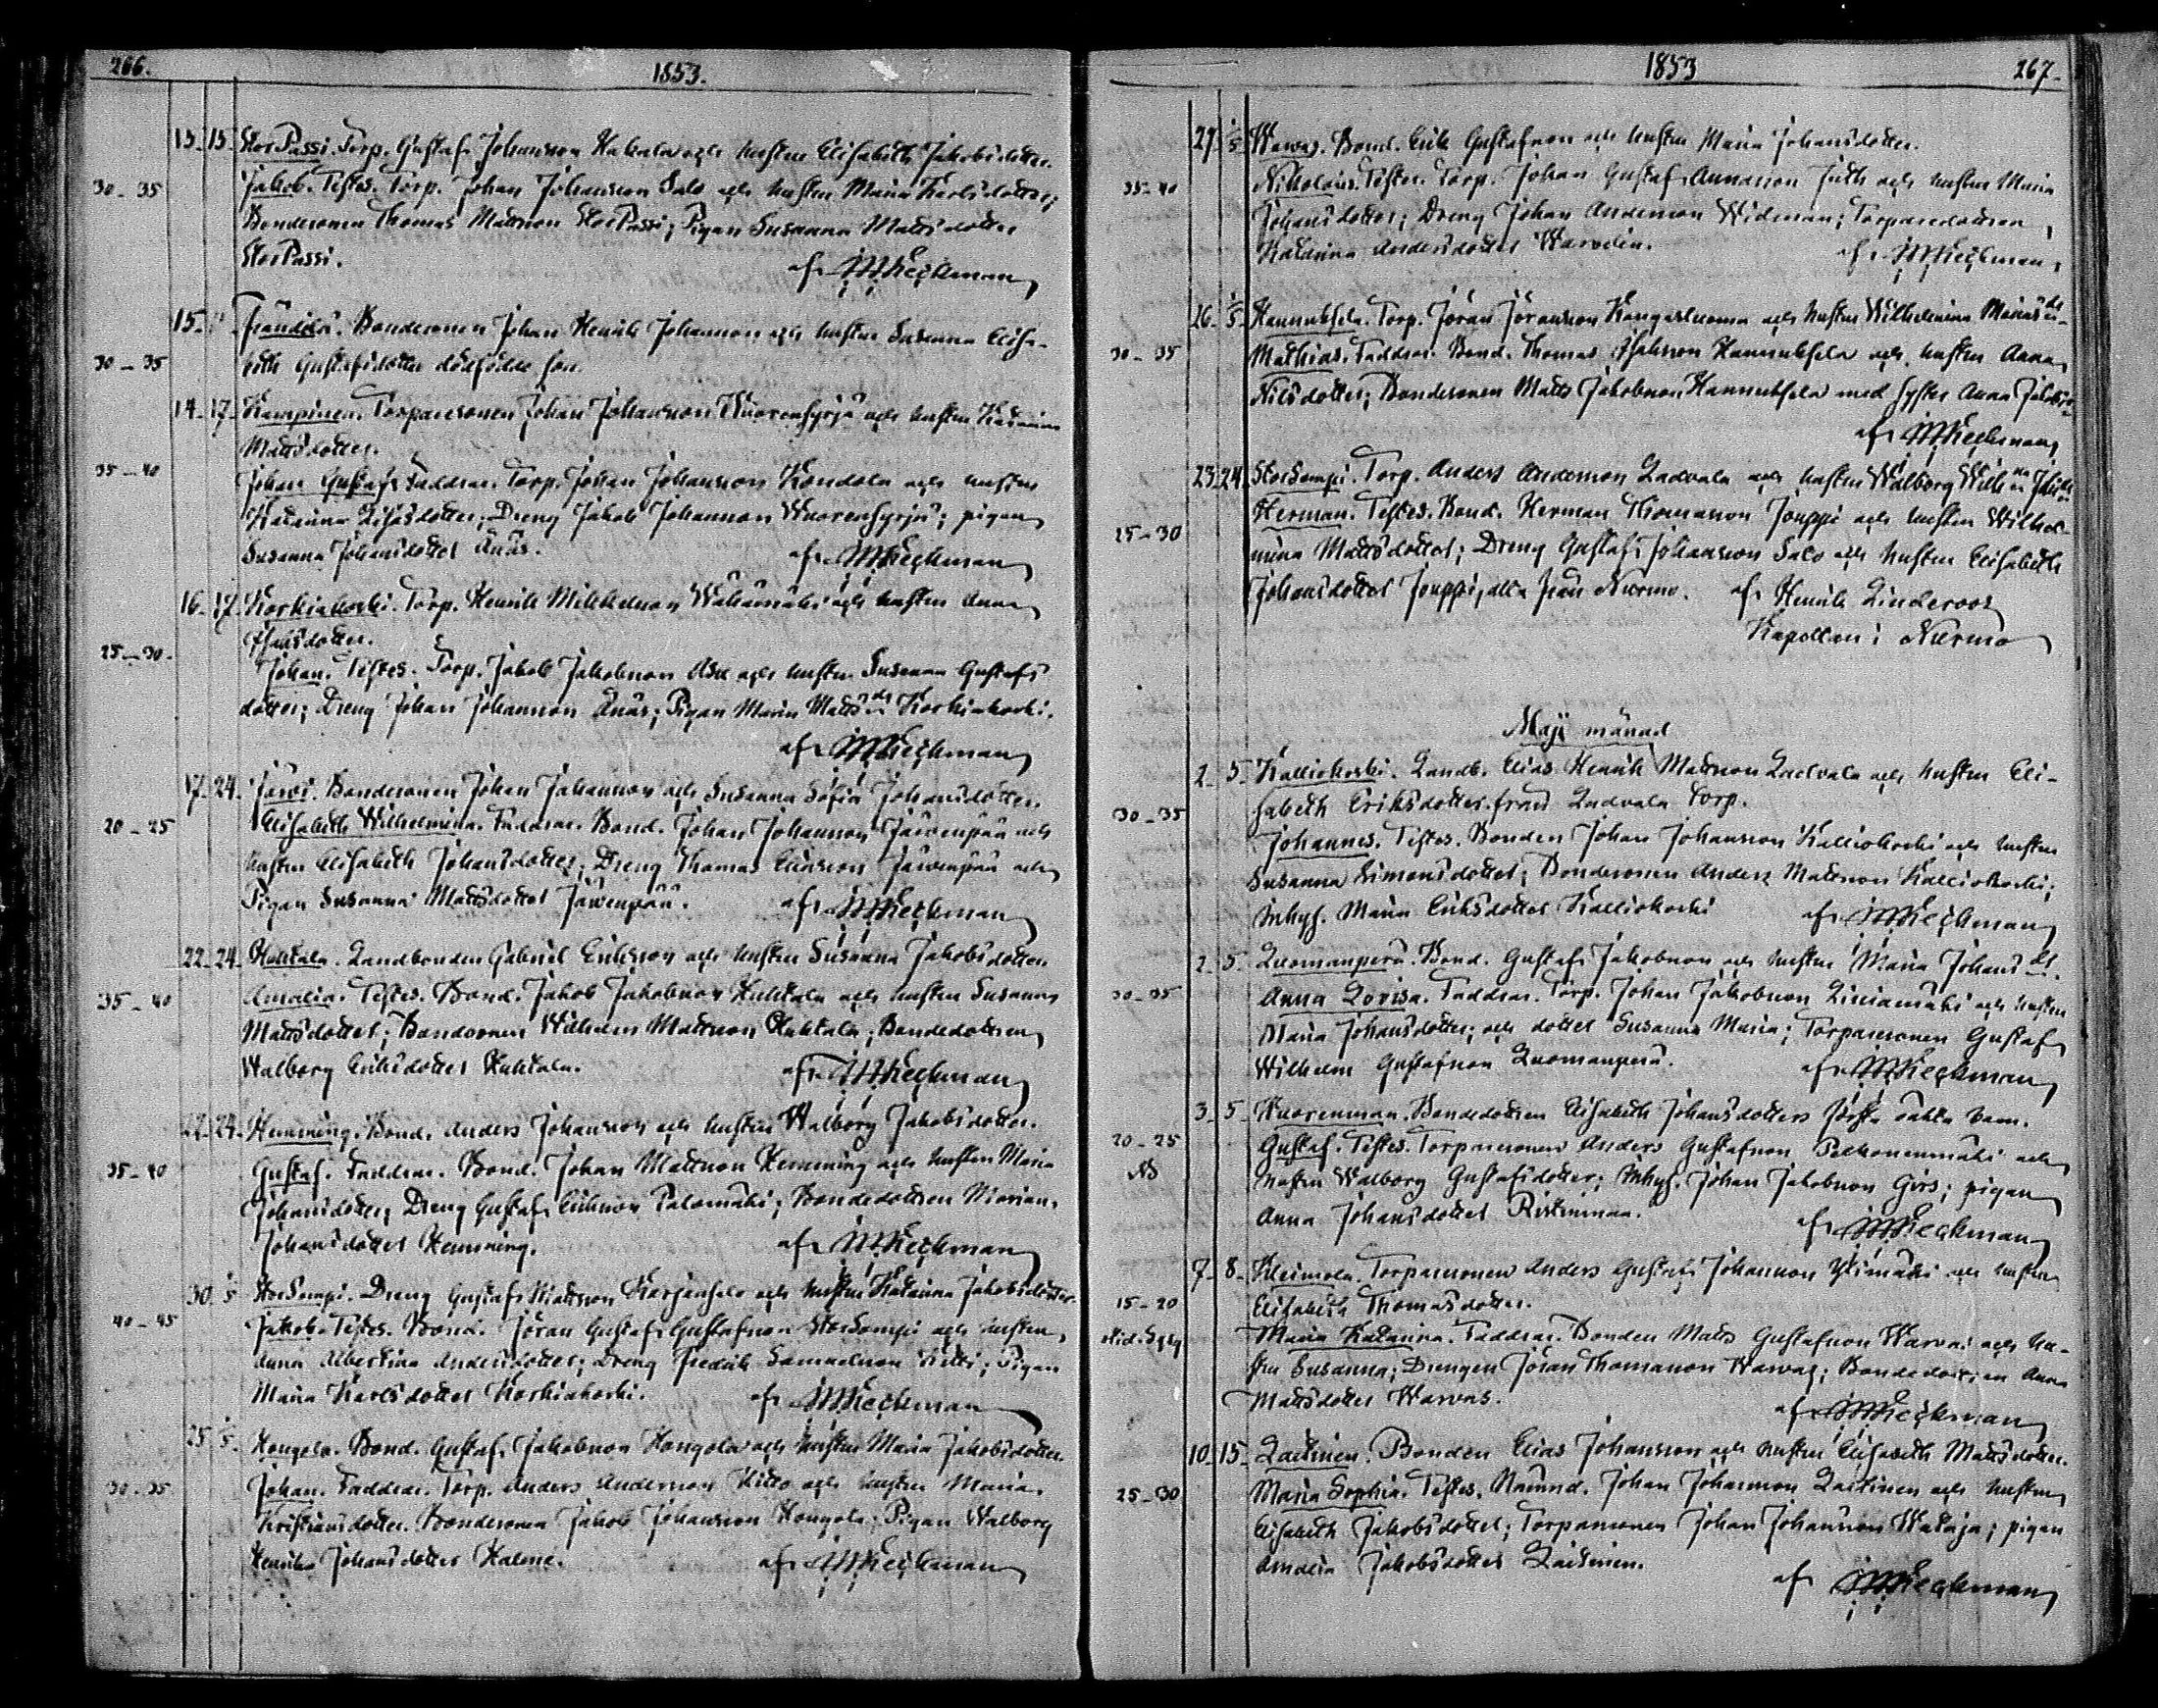 266.
1853.
13. 15. StorPassi. Torp. Gustaf Johansson Hakala och hustrun Elisabeth Jakobsdotter.
30-35 Jakob. Testes. Torp. Johan Johansson Salo och hustrun Maria Karlsdotter;
Bondesonen Thomas Mattsson StorPassi; Pigan Susanna Mattsdotter
StorPassi. af
15. Bondesonen Johan Henrik Johansson och hustrun Susanna Elisa-
30-35 beth Gustafsdotter dödfödde son.
14. 17. Kampinen. Torparesonen Johan Johansson Wuorensyrjä och hustrun Katarina
Mattsdotter.
35-40 Johan Gustaf. Faddrar. Torp. Johan Johansson Kondola och hustrun
Katarina Dreng Jakob Johansson Wuorensyrjä; pigan
Susanna Johansdotter Änäs. af
16. 17. Korkiakoski. Torp. Henrik Mikkelsson Wähämäki och hustrun Anna
25-30. Johan. Testes. Torp. Jakob Jakobsson och hustrun Susanna Gustafs
dotter; Dreng Johan Johansson Änäs; Pigan Maria Matts dr Korkiakoski.
af
17. 24. Järvi. Bondesonen Johan Johansson och Susanna Sofia Johansdotter.
20-25 Elisabeth Wilhelmina. Faddrar. Bond. Johan Johansson Järvenpää och
hustrun Elisabeth Johansdotter; Dreng Thomas Eliasson Järvenpää och
Pigan Susanna Mattsdotter Järvenpää. af
22. 24. Huhtala. Landbonden Gabriel Eriksson och hustrun Susanna Jakobsdotter.
35-40 Amalia. Testes. Bond. Jakob Jakobsson Huhtala och hustrun Susanna
Mattsdotter; Bondesonen Wilhelm Mattsson Huhtala; Bondedottren
Walborg Eriksdotter Huhtala. af
22. 24. Hemming. Bond. Anders Johansson och hustrun Walborg Jakobsdotter.
35-40 Gustaf. Faddrar. Bond. Johan Mattsson Hemming och hustrun Maria
Johansdotter; Dreng Gustaf Eriksson Palomäki; Bondedottren Mariana
Johansdotter Hemming. af
30. 1/5 StorSompi. Dreng Gustaf Mattsson och hustrun Katarina Jakobsdotter.
40-45 Jakob. Testes. Bond. Jöran Gustaf Gustafsson StorSompi och hustrun
Anna Albertina Andersdotter; Dreng Fredrik Samuelsson Pigan
Maria Karlsdotter Korkiakoski. af
25. 1/5. Hongola. Bond. Gustaf Jakobsson Hongola och hustrun Maria Jakobsdotter.
30-35 Johan. Faddrar. Torp. Anders Andersson och hustrun Maria
Kristiansdotter. Bondesonen Jakob Johansson Hongola; Pigan Walborg
Henrika Johansdotter af
1853
267.
27. 1/5 Warvas. Bond. Erik Gustafsson och hustrun Maria Johansdotter.
35-40 Nikolaus. Testes. Torp. Johan Gustaf Annasson och hustrun Maria
Johansdotter; Dreng Johan Andersson Widman; Torparedottren
Katarina Andersdotter Warvelin. af
26. 1/5 Hannuksela. Torp. Jöran Jöransson Kangasluoma och hustrun Wilhelmina
30-35 Mathias. Faddrar. Bond. Thomas Hannuksela och hustrun Anna
Nilsdotter; Bondesonen Matts Jakobsson Hannuksela med syster Anna
af
23. 24. StorSompi. Torp. Anders Andersson Ladvala och hustrun Walborg
25-30 Herman. Testes. Bond. Herman Thomasson Jouppi och hustrun Wilhel-
mina Mattsdotter; Dreng Gustaf Johansson Salo och hustrun Elisabeth
Johansdotter Jouppi, alla från Nurmo. af Henrik Linderoos
Kapellan i Nurmo
Maji månad
2. 5. Kalliokoski. Landb. Elias Henrik Mattsson Ladvala och hustrun Eli-
30-35 sabeth Eriksdotter från Ladvala Torp.
Johannes. Testes. Bonden Johan Johansson Kalliokoski och hustrun
Susanna Simonsdotter; Bondesonen Anders Mattsson Kalliokoski;
Inhys. Maria Eriksdotter Kalliokoski af
2. 5. Luomanperä. Bond. Gustaf Jakobsson och hustrun Maria Johans dr.
30-35 Anna Lovisa. Faddrar. Torp. Johan Jakobsson och hustrun
Maria Johansdotter; och dotter Susanna Maria; Torparesonen Gustaf
Wilhelm Gustafsson Luomanperä. af
3. 5. Wuorenmaa. Bondedottren Elisabeth Johansdotters första oäkta barn.
20-25 Gustaf. Testes. Torparesonen Anders Gustafsson Pelkonenmäki och
hustrun Walborg Gustafsdotter; Inhys. Johan Jakobsson Girs; pigan
Anna Johansdotter Ristimaa. af
7. 8. Heimola. Torparesonen Anders Gustaf Johansson Ylimäki och hustrun
15-20 Elisabeth Thomasdotter.
Maria Katarina. Faddrar. Bonden Matts Gustafsson Warvas och hu-
stru Susanna; Drengen Jöran Thomasson Warvas; Bondedottren Anna
Mattsdotter Warvas. af
10. 15. Laitinen. Bonden Elias Johansson och hustrun Elisabeth Mattsdotter.
25-30 Maria Sophia. Testes. Nämnd. Johan Johansson Laitinen och hustrun
Elisabeth Jakobsdotter; Torparesonen Johan Johansson Wataja; pigan
Amalia Jakobsdotter Laitinen. af